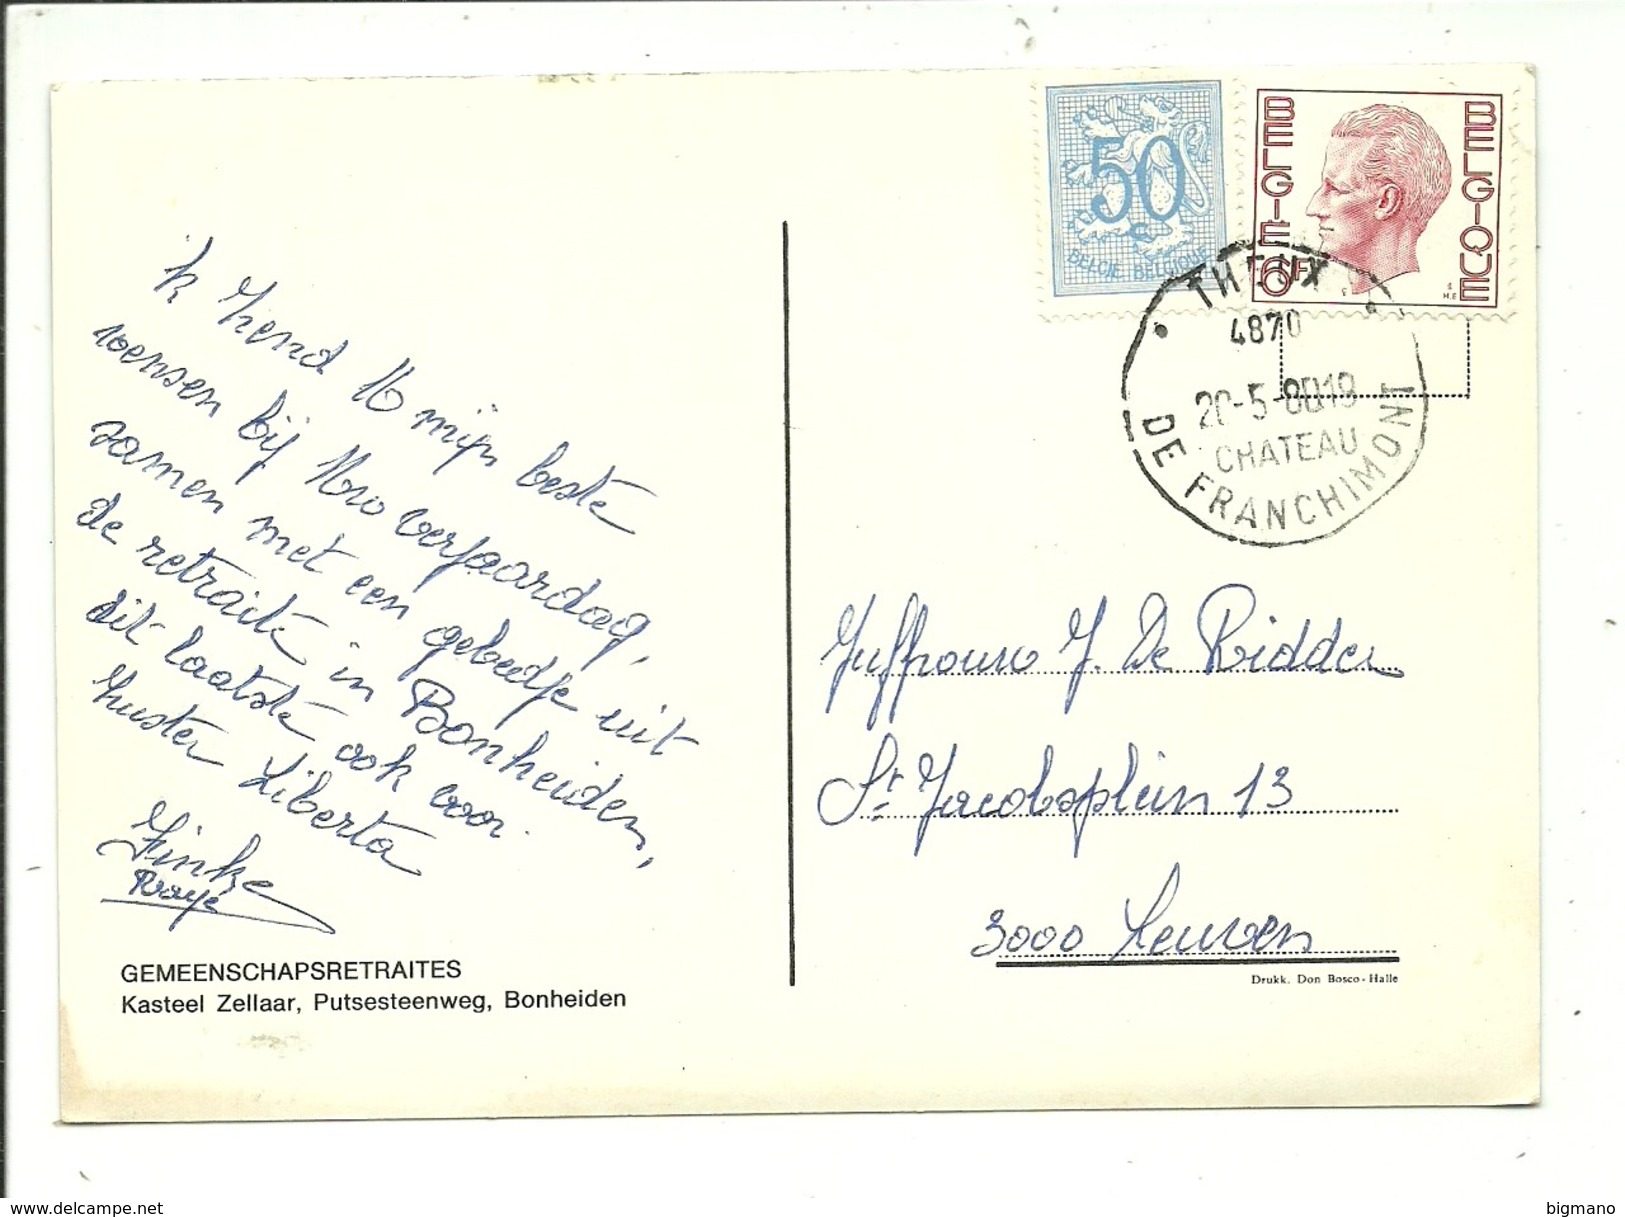 Ik zend U mijn beste
wensen bij Uw verjaardag,
samen met een gebedje uit
de retraite in Bonheiden,
dit laatste ook voor
zuster Liberta
GEMEENSCHAPSRETRAITES
Kasteel Zellaar, Putsesteenweg, Bonheiden
50
c
BELGIE BELGIQUE
BELGIË
BELGIQUE
6F
THEUX
4870
20-5-80 18
CHATEAU
DE FRANCHIMONT
Juffrouw J. De Ridder
St Jacobsplein 13
3000 Leuven
Drukk. Don Bosco - Halle
bigmano